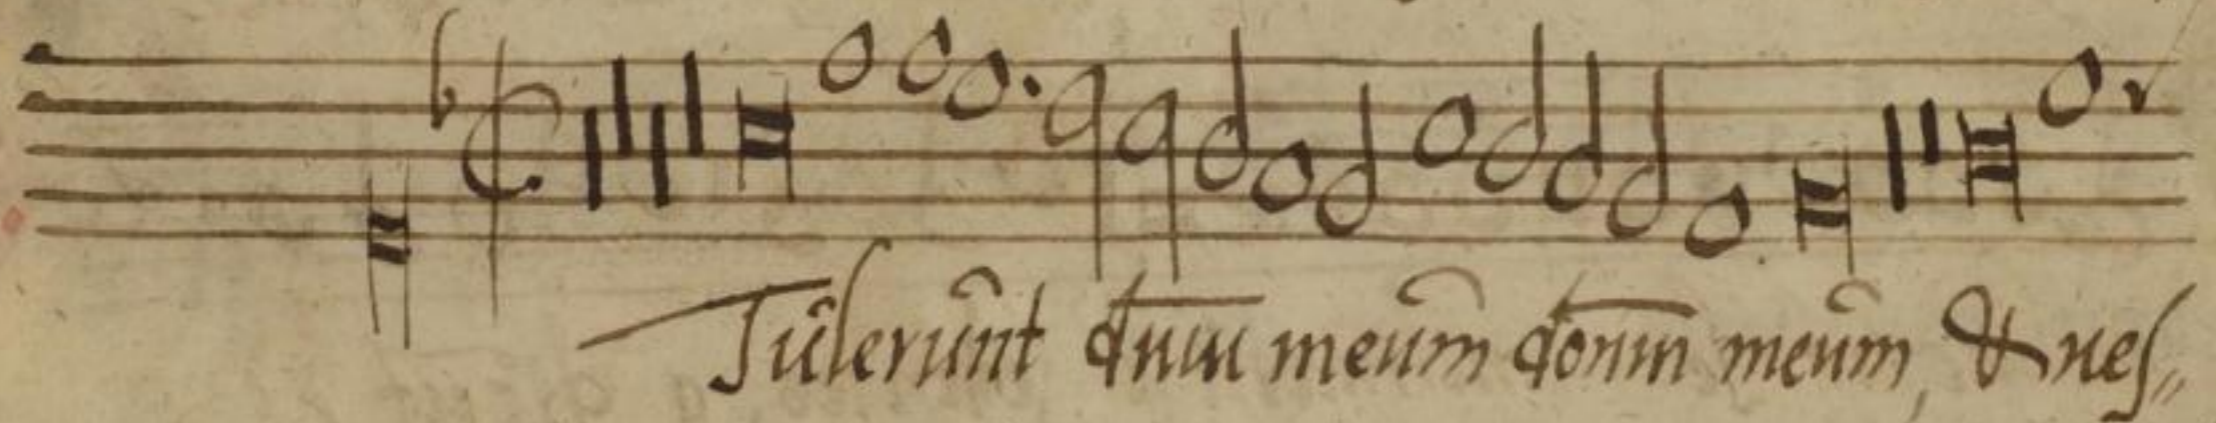 Tulerunt dnm meum donm meum, & nes⸗